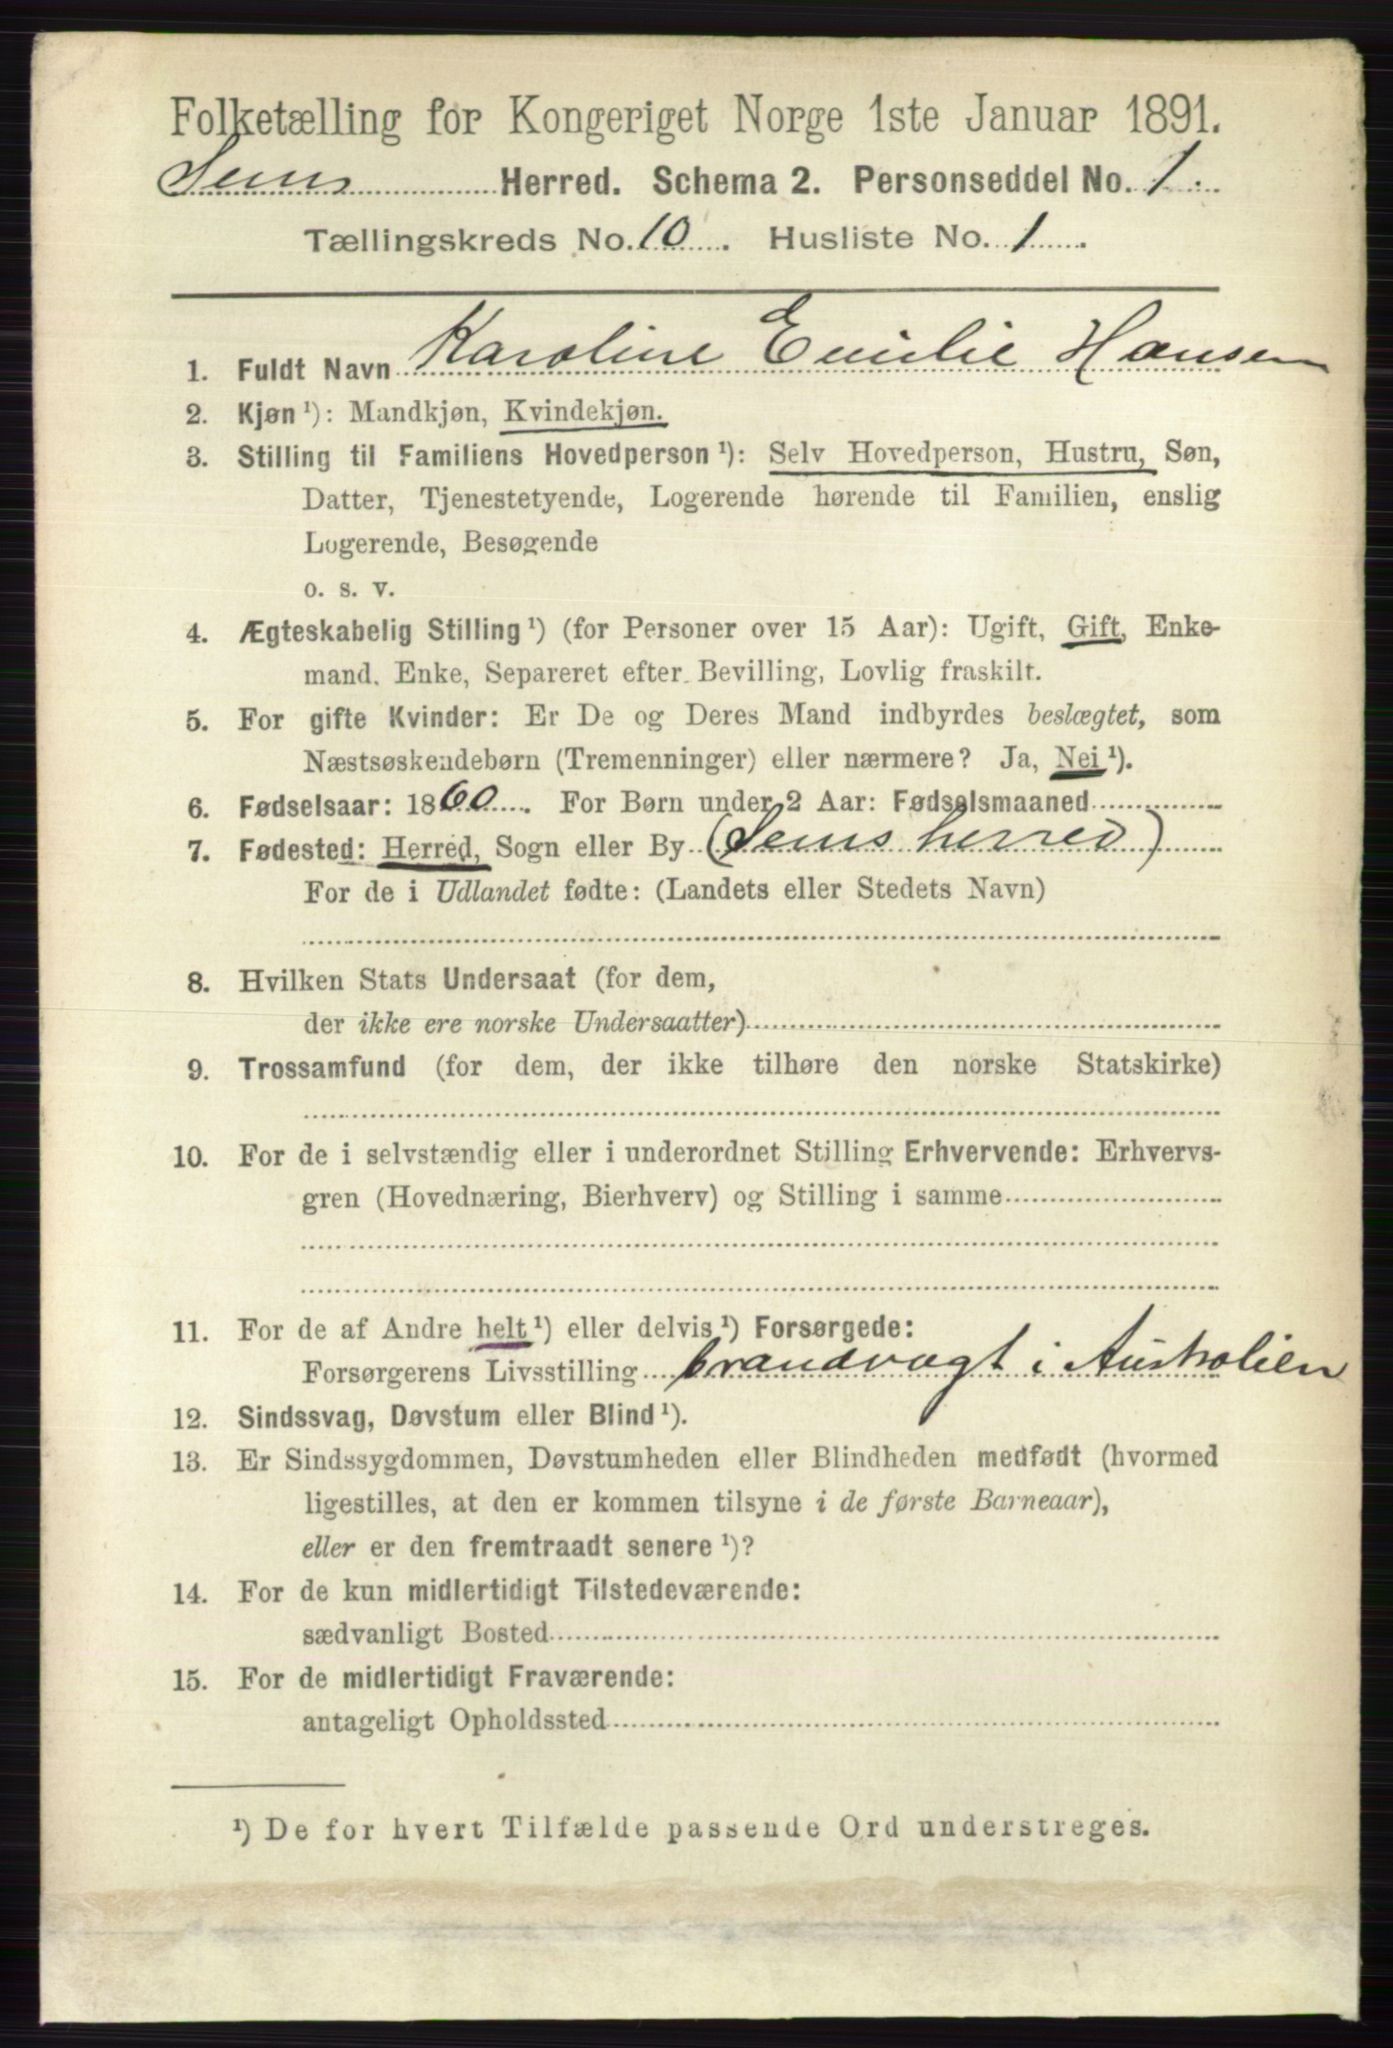 Folketælling for Kongeriget Norge 1ste Januar 1891.
Sems Herred. Schema 2. Personseddel No. 1.
Tællingskreds No. 10. Husliste No. 1.
1. Fuldt Navn Karoline Emilie Hansen
2. Kjøn ¹): Mandkjøn, Kvindekjøn.
3. Stilling til Familiens Hovedperson ¹): Selv Hovedperson, Hustru, Søn,
Datter, Tjenestetyende, Logerende hørende til Familien, enslig
Logerende, Besøgende
o. s. v.
4. Ægteskabelig Stilling ¹) (for Personer over 15 Aar): Ugift, Gift, Enke-
mand, Enke, Separeret efter Bevilling, Lovlig fraskilt.
5. For gifte Kvinder: Er De og Deres Mand indbyrdes beslægtet, som
Næstsøskendebørn (Tremenninger) eller nærmere? Ja, Nei ¹).
6. Fødselsaar: 1860. For Børn under 2 Aar: Fødselsmaaned
7. Fødested: Herred, Sogn eller By (Sems herred)
For de i Udlandet fødte: (Landets eller Stedets Navn)
8. Hvilken Stats Undersaat (for dem,
der ikke ere norske Undersaatter)
9. Trossamfund (for dem, der ikke tilhøre den norske Statskirke)
10. For de i selvstændig eller i underordnet Stilling Erhvervende: Erhvervs-
gren (Hovednæring, Bierhverv) og Stilling i samme
11. For de af Andre helt ¹) eller delvis ¹) Forsørgede:
Forsørgerens Livsstilling brandvagt i Australien
12. Sindssvag, Døvstum eller Blind ¹).
13. Er Sindssygdommen, Døvstumheden eller Blindheden medfødt (hvormed
ligestilles, at den er kommen tilsyne i de første Barneaar),
eller er den fremtraadt senere ¹)?
14. For de kun midlertidigt Tilstedeværende:
sædvanligt Bosted
15. For de midlertidigt Fraværende:
antageligt Opholdssted
¹) De for hvert Tilfælde passende Ord understreges.